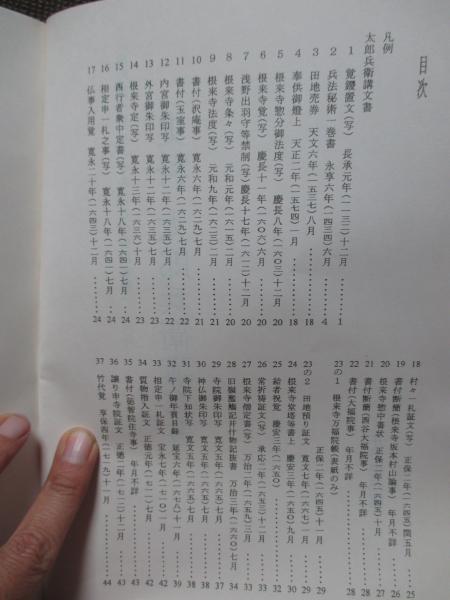 目次
凡例
太郎兵衛講文書
1 覚鑁置文(写) 長承元年(一一三二)十二月 ……… 1
2 兵法秘術一巻書 永享六年(一四三四)六月 ……… 4
3 田地売券 天文六年(一五三七)八月 ……… 18
4 奉供御燈上 天正二年(一五七四)一月 ……… 18
5 根来寺惣分御法度(写) 慶長八年(一六〇三)十二月 ……… 20
6 根来寺覚(写) 慶長十一年(一六〇六)六月 ……… 20
7 浅野出羽守等禁制(写) 慶長十七年(一六一二)十二月 ……… 20
8 根来寺条々(写) 元和元年(一六一五)二月 ……… 20
9 根来寺法度(写) 元和九年(一六二三)二月 ……… 21
10 書付(沢庵事) 寛永六年(一六二九)七月 ……… 21
11 書付(玉室事) 寛永六年(一六二九)七月 ……… 22
12 内宮御朱印写 寛永十二年(一六三五)七月 ……… 23
13 外宮御朱印写 寛永十二年(一六三五)七月 ……… 23
14 根来寺定(写) 寛永十三年(一六三六)十月 ……… 23
15 西行者衆中定書(写) 寛永十八年(一六四一)七月 ……… 24
16 相定申一札之事(写) 寛永十八年(一六四一)七月 ……… 24
17 仏事入用覚 寛永二十年(一六四三)十一月 ……… 24
18 村々一札証文(写) 正保二年(一六四五)閏五月 ……… 25
19 書付断簡(根来寺坂本村山論事) 年月不詳 ……… 26
20 根来寺惣中書状 正保二年(一六四五)十月 ……… 27
21 書付断簡(西谷大福院事) 年月不詳 ……… 28
22 書付(大福院事) 年月不詳 ……… 28
23の1 根来寺万福院帳(表紙のみ)
正保二年(一六四五)十一月 ……… 29
23の2 田地預り証文 寛文七年(一六六七)一月 ……… 29
24 根来寺伽塔等書上 慶安三年(一六五〇)九月 ……… 30
25 給者祝覚 慶安三年(一六五〇) ……… 32
26 常祈祷証文(写) 承応二年(一六五三)十二月 ……… 33
27 根来寺僧定書(写) 万治二年(一六五九)三月 ……… 33
28 旧檻鑑鶴沼井付物記抜書 万治三年(一六六〇)七月 ……… 34
29 寺院御朱印写 寛文五年(一六六五)七月 ……… 38
30 神仏御朱印写 寛文五年(一六六五)七月 ……… 38
31 寺院下知状写 寛文五年(一六六五)七月 ……… 38
32 午ノ御年貢目録 延宝六年(一六七八)十一月 ……… 39
33 相定申一札証文 宝永七年(一七一〇)一月 ……… 42
34 質物指入証文 正徳元年(一七一一)七月 ……… 42
35 書付(弱智院住寺事) 年月不詳 ……… 43
36 譲り申寺院証文 正徳二年(一七一二)十二月 ……… 43
37 竹代覚 享保四年(一七一九)十一月 ……… 44